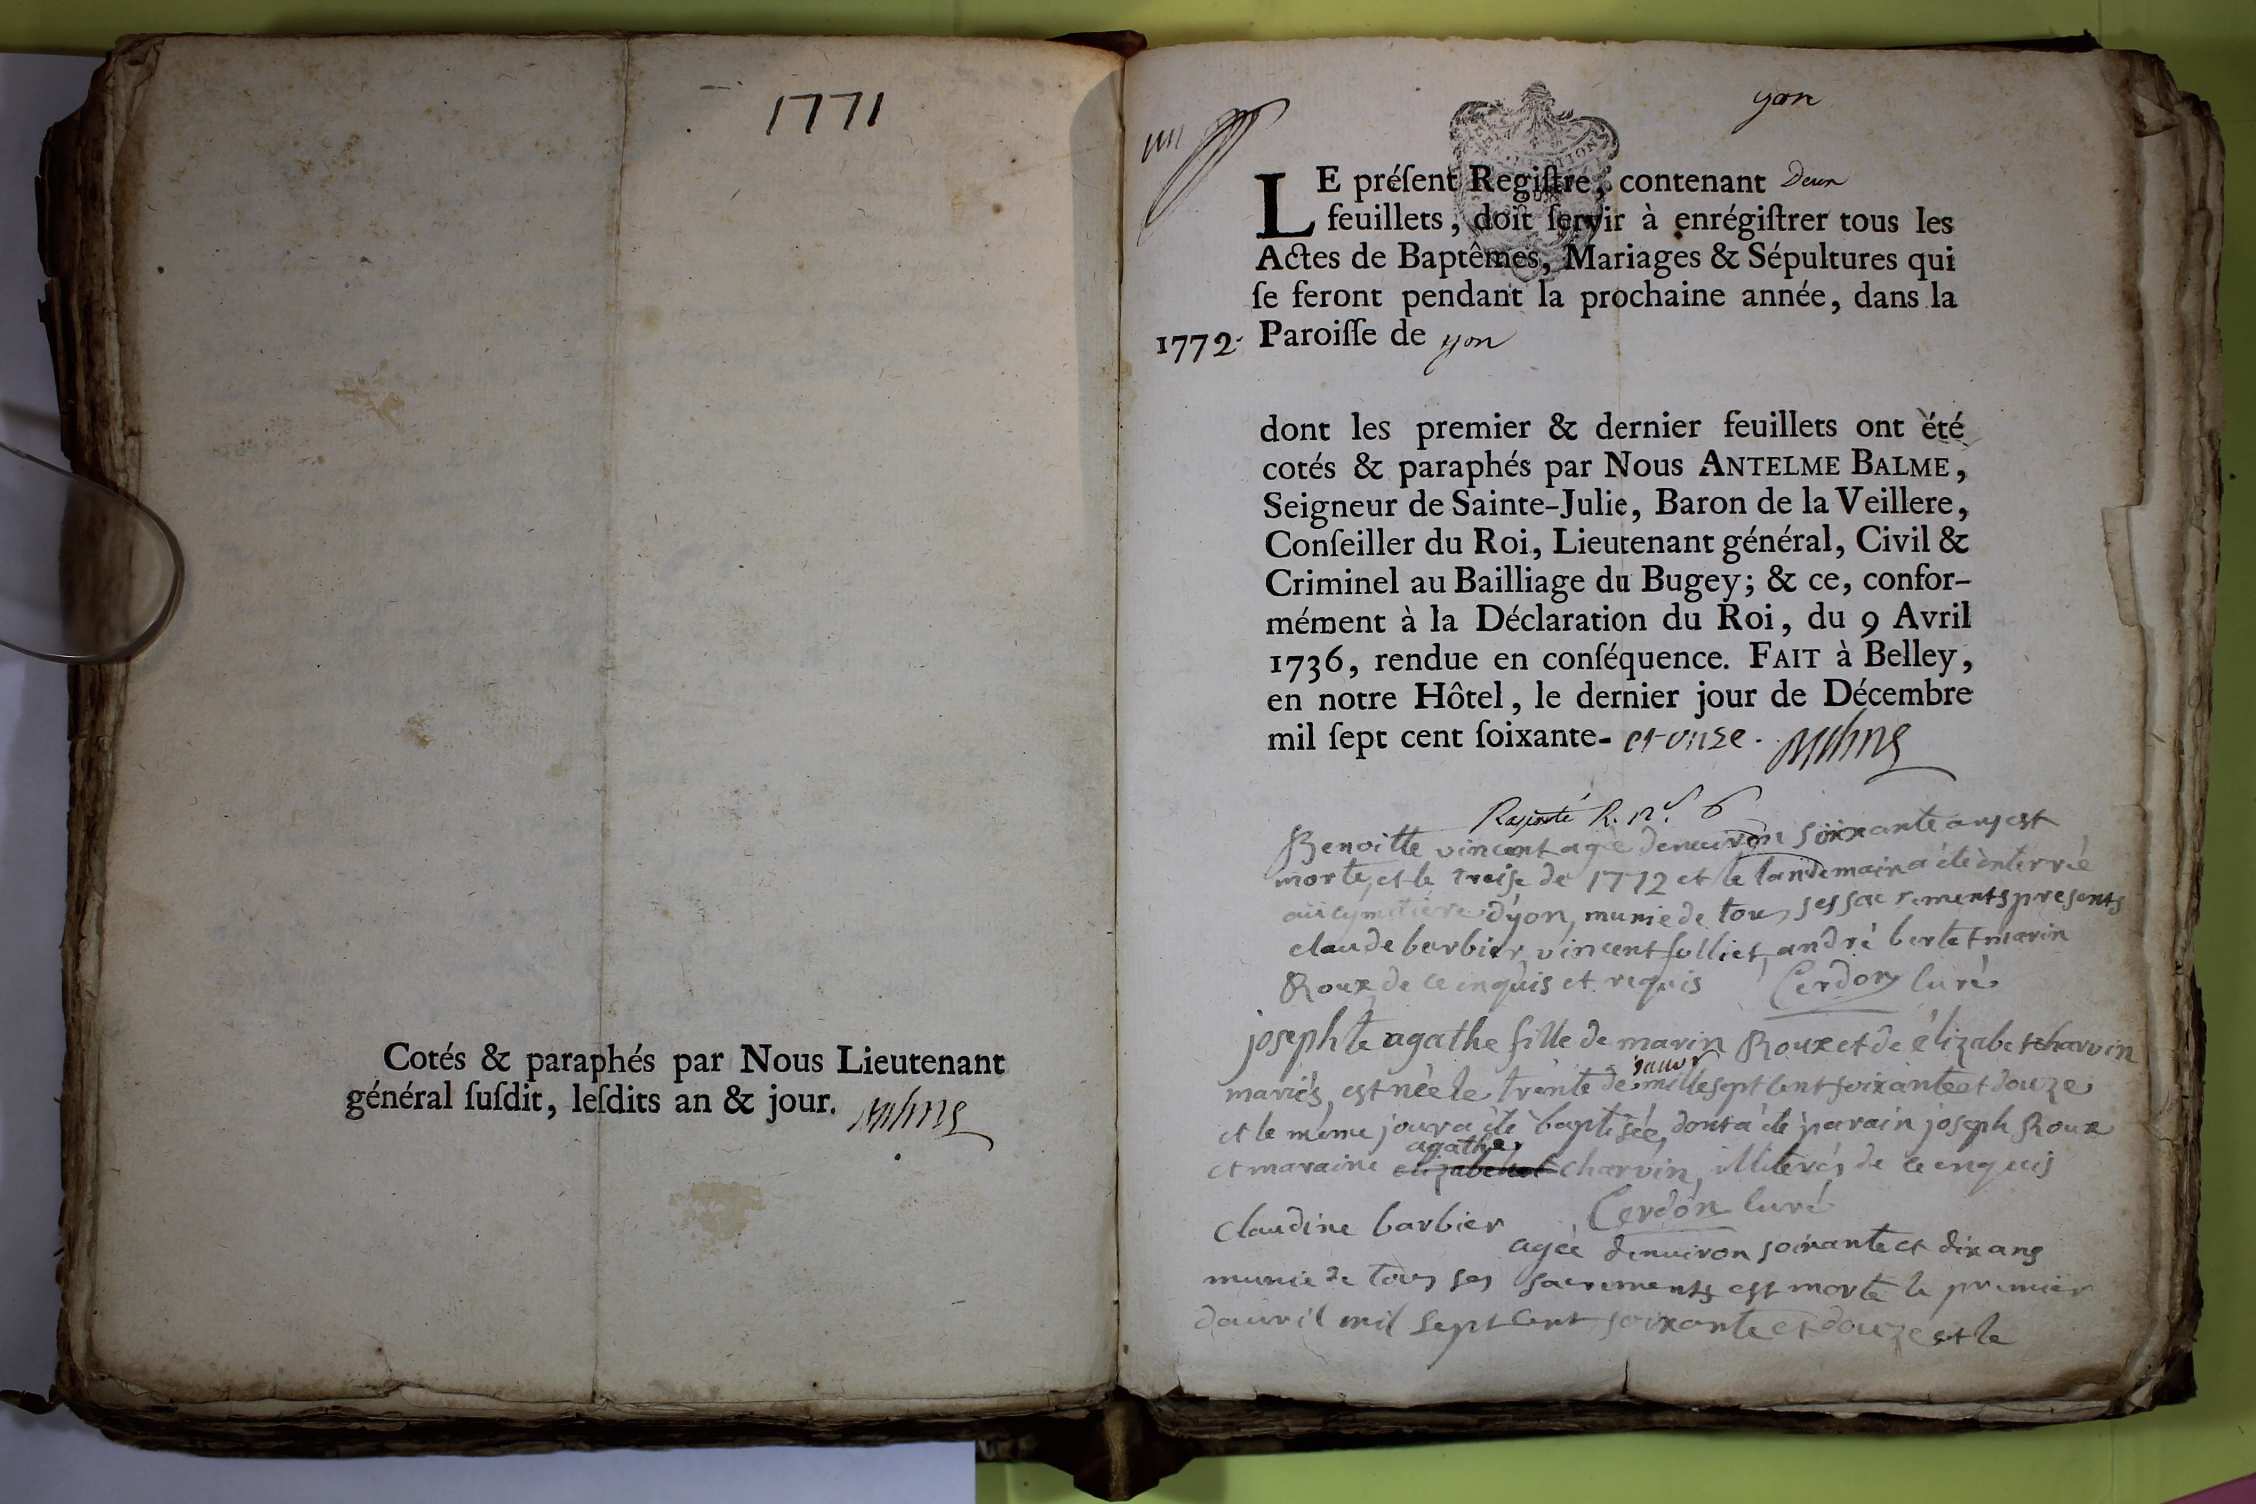 1771
Cotés & paraphés par Nous Lieutenant
général ſuſdit, leſdits an & jour.
yon
LE préſent Regiſtre, contenant Deux
feuillets, doit ſervir à enrégiſtrer tous les
Actes de Baptêmes, Mariages & Sépultures qui
ſe feront pendant la prochaine année, dans la
1772. Paroiſſe de yon
dont les premier & dernier feuillets ont été
cotés & paraphés par Nous ANTELME BALME,
Seigneur de Sainte-Julie, Baron de la Veillere,
Conſeiller du Roi, Lieutenant général, Civil &
Criminel au Bailliage du Bugey; & ce, confor-
mément à la Déclaration du Roi, du 9 Avril
1736, rendue en conſéquence. FAIT à Belley,
en notre Hôtel, le dernier jour de Décembre
mil ſept cent ſoixante- et onze.
Benoitte vincent agée denuiron soixante ans est
morte, et le treise de 1772 et le landemain a été enterrée
au cymetiere d'yon, munie de tous ses sacrements presents
claude barbier, vincent folliet, andré berlet marin
Roux de ce enquis et requis Cerdon Curé
josephte agathe fille de marin Roux et de élizabet charvin
janvr
mariés, est née le trente de mille sept cent soixante et douze
et le meme jour a été baptisée, dont a été parain joseph Roux
agathe
et maraine elizabet charvin, illiterés de ce enquis
Cerdon Curé
Claudine barbier
agée denuiron soixante et dix ans
munie de tous ses sacrements est morte le premier
d'auril mil sept cent soixante et douze et le